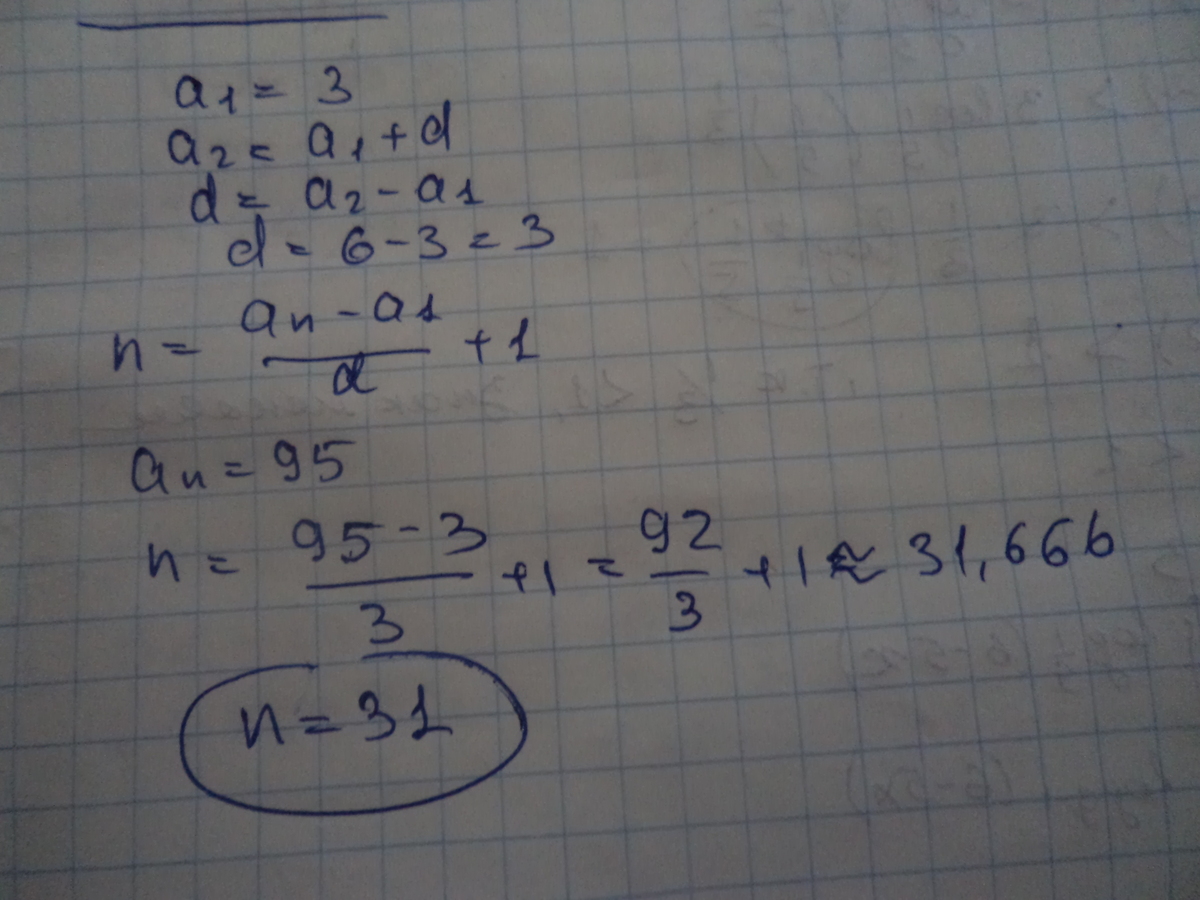 a₁ = 3
a₂ = a₁ + d
d = a₂ - a₁
d = 6 - 3 = 3
n = (aₙ - a₁)/d + 1
aₙ = 95
n = (95 - 3)/3 + 1 = 92/3 + 1 ≈ 31,666
n = 31